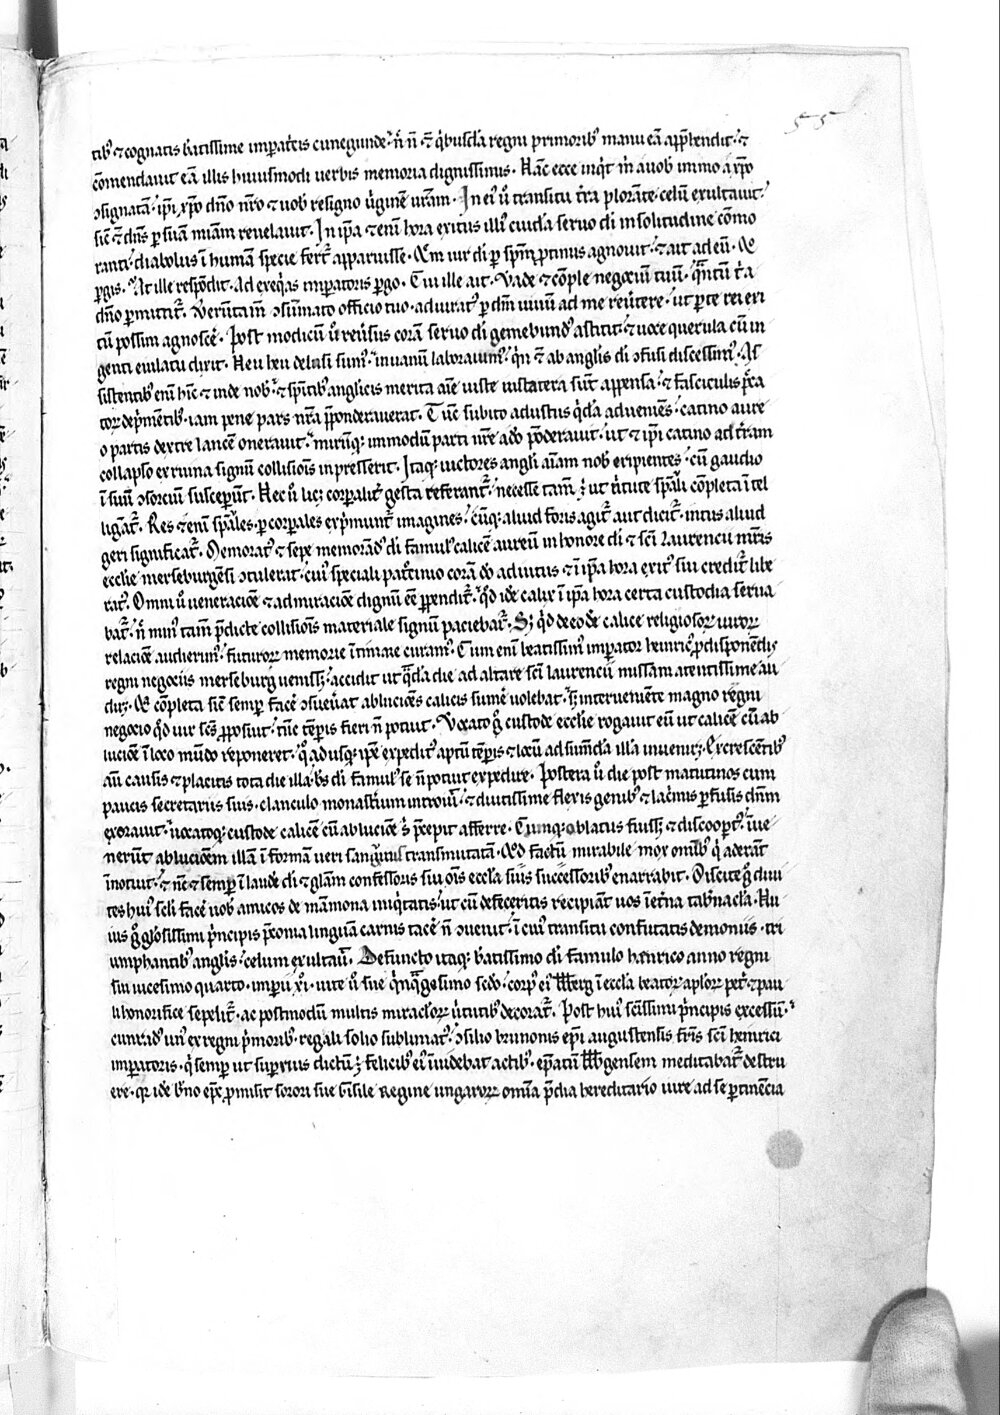 55
tib᷒ ⁊ cognatis b̅atissime imp̅atricis cunegunde· n̅ n̅ ⁊ q̇busda̅ regni primorib᷒ manu ea̅ app̅hendit· ⁊
co̅mendauit ea̅ illis huiusmodi uerbis memoria dignissimis· Hanc ecce inq̇t m̅ a uob̅ immo a xp̅o
ↄsignata̅· ip̅i xp̅o dn̅o nr̅o ⁊ uob̅ resigno u̇gine̅ ur̅am· In ei᷒ u̅ transitu t̅ra plora̅te celu̅ exultauit·
sic̅ ⁊ dn̅s p̱ sua̅ mi̅am reuelauit· In ip̅a ⁊eni̅ hora exitus illi᷒ cuida̅ seruo di̅ in solitudine co̅mo
ranti· diabolus i̅ humana̅ specie fert᷑ apparuisse· Que̅ uir di̅ p̱ sp̅m ꝓtinus agnouit· ⁊ ait ad eu̅· Quo
p̱gis· At ille respo̅dit· Ad exeq̇as imp̅atoris p̱go· Cui ille ait· Vade ⁊ co̅ple negociu̅ tuu̅· qu̅antu̅ t̅ a
dn̅o p̱mittit᷑· Veru̅ta̅n̅ ↄsu̅mato officio tuo· adiurat᷒ p̱ dm̅ uiuu̅ ad me reu̅tere· ut p̱ te rei eue̅
tu̅ possim agnosce̅· Post modicu̅ u̅ reu̅sus cora̅ seruo di̅ gemebund᷒ astitit· ⁊ uoce querula cu̅ in
genti eiulatu dixit· Heu heu delusi sum᷒· inuanu̅ laborauim᷒· q̇n ⁊ ab anglis di̅ ↄfusi discessim᷒· As
sistentib᷒ eni̅ hinc̅ ⁊ inde nob̅· ⁊ sp̅ritib᷒ anglicis merita a̅ie iuste in statera su̅t appensa· ⁊ fasciculis p̅cca
tor̅ dep̅mentib᷒· iam pene pars nr̅a p̅ponderauerat· Tu̅c subito adustus q̇da̅ adueniens· catino aure
o partis dextre lance̅ onerauit· miru̅q; immodu̅ parti nr̅e adeo p̅oderauit· ut ⁊ ip̅i catino ad t̅ram
collapso ex ruina signu̅ collisionis inpresserit· Itaq; uictores angli a̅iam nob̅ eripientes· cu̅ gaudio
i̅ suu̅ ↄsorciu̅ suscep̱unt· Hec u̅ licꝫ corp̱alit᷑ gesta referant᷑· necesse tam̅ ÷ ut u̇tute sp̅ali co̅pleta i̅tel
ligant᷑· Res ⁊eni̅ sp̅ales· p̱ corp̱ales exṗmunt᷑ imagines· cu̅q; aliud foris agit᷑ aut dicit᷑· intus aliud
geri significat᷑· Memorat᷒ ⁊ sepe memorand᷒ di̅ famul᷒ calice̅ aureu̅ in honore di̅ ⁊ sc̅i Laurencii m̅ris
eccl̅ie merseburgensi ↄtulerat· cui᷒ speciali patr̅cinio cora̅ do̅ adiutus ⁊ i̅ ip̅a hora exit᷒ sui credit᷑ libe
rat᷒· Omni u̅ ueneracio̅e ⁊ admiracio̅e dignu̅ ee̅ p̱pendit᷑· q̇d ide̅ calix i̅ ip̅a hora certa custodia serua
bat᷑· n̅ min᷒ tam̅ p̅dicte collisionis materiale signu̅ paciebat᷑· S; q̇d de eode̅ calice religiosoꝝ uiroꝝ
relacio̅e audierim᷒· futuroꝝ memorie i̅timare curam᷒· Cum eni̅ beatissim᷒ imp̱ator heinric᷒ ꝓ disponendis
regni negociis merseburg uenissꝫ· accidit ut q̅da̅ die ad altare sc̅i laurencii missam atentissime au
diret· Qua co̅pleta sic̅ semp̱ face̅ ↄsueu̅at abluciones calicis sume̅ uolebat· ſꝫ interueniente magno regni
negocio q̇d uir sc̅s ꝓposuit· tu̅c te̅p̱is fieri n̅ potuit· Vocato g̊ custode eccl̅ie rogauit eu̅ ut calice̅ cu̅ ab
lucio̅e i̅ loco mu̅do reponeret· quo adusq; ip̅e expedit᷒ aptu̅ te̅p̱is ⁊ locu̅ ad sume̅da̅ illa̅ inueniret· Excrescentib᷒
au̅ causis ⁊ placitis tota die illa· b̅s di̅ famul᷒ se n̅ potuit expedire· Postera u̅ die post matutinos cum
paucis secretariis suis· clanculo monast̅rium introiuit· ⁊ diutissime flexis genib᷒ ⁊ lac̅mis p̱fusis dn̅m
exorauit· uocatoq; custode calice̅ cu̅ ablucio̅e ſ̅ p̅cepit afferre· Cumq; oblatus fuissꝫ ⁊ discoop̱t᷒· i̅ue
neru̅t ablucio̅em illa̅ i̅ forma̅ ueri sanguinis transmutata̅· Quod factu̅ mirabile mox omnib᷒ q̇ aderant
i̅notuit· ⁊ nc̅ ⁊ semp̱ i̅ laude di̅ ⁊ glo̅am confessoris sui om̅is eccl̅a suis successorib᷒ enarrabit· Discite g̊ diui
tes hui᷒ sc̅li face̅ uob̅ amicos de mammona iniq̇tatis· ut cu̅ defeceritis recipiant uos i̅ et̅na tab̅nacl̅a· Hu
ius g̊ glo̅sissimi ṗncipis p̅conia lingua̅ carnis tace̅ n̅ ↄuenit· i̅ cui᷒ transitu confutatis demoniis· tri
umphantib᷒ anglis· celum exultauit· Defuncto itaq; b̅atissimo di̅ famulo henrico anno regni
sui uicesimo quarto· imp̱ii xi· uite u̅ sue q̇nq̅gesimo sc̅do· corp᷒ ei᷒ Bbberg i̅ eccl̅a beatoꝝ ap̅loꝝ petri ⁊ pau
li honorifice sepelit᷑· ac postmodu̅ multis miracloꝝ u̇tutib᷒ decorat᷑· Post hui᷒ sc̅issimi ṗncipis excessu̅·
cunrad᷒ un᷒ ex regni ṗmorib᷒· regali solio sublimat᷒· ↄsilio brunonis ep̅i augustensis fr̅is sc̅i heinrici
imp̱atoris· q̇ semp̱ ut sup̱ius dictu̅ ÷ felicib᷒ ei᷒ i̅uidebat actib᷒· ep̅atu̅ Bbbgensem meditabat᷑ destru
ere· q̇a ide̅ b̅no ep̅c ꝓmisit sorori sue Gisile Regine ungaroꝝ omnia p̅dia hereditario iure ad se p̱tinencia